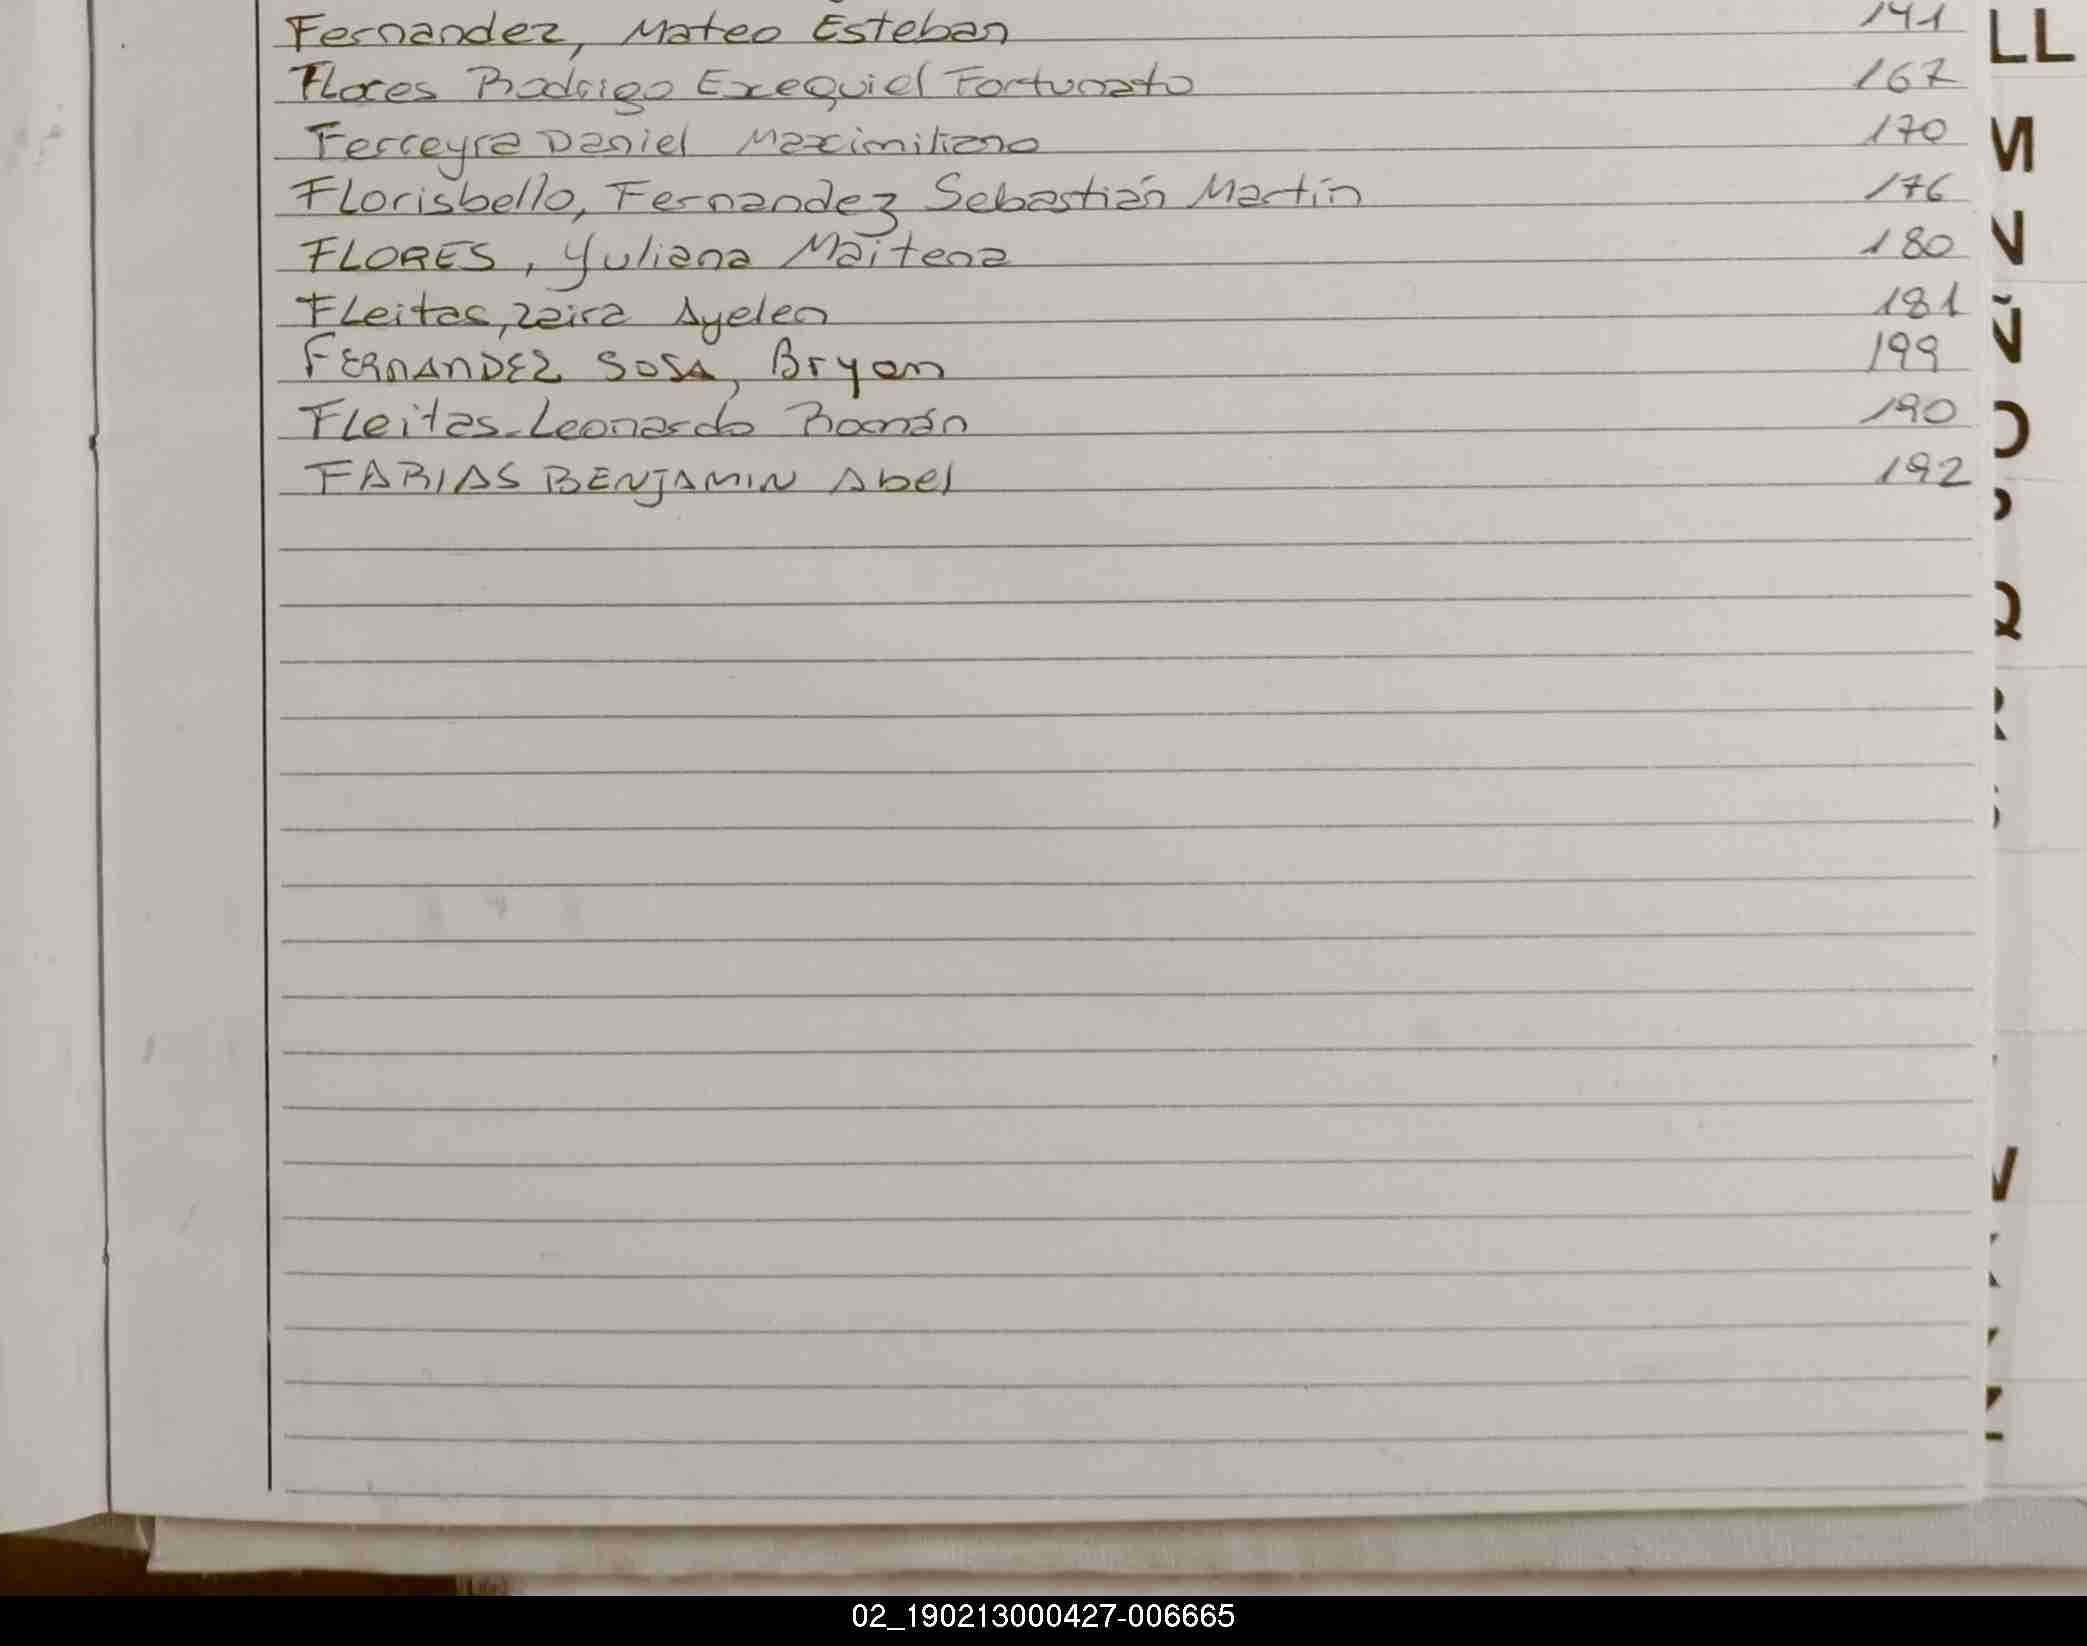 Fernandez, Mateo Esteban 141
Flores Rodrigo Exequiel Fortunato 167
Ferreyra Daniel Maximiliano 170
Florisbello, Fernandez Sebastián Martín 176
FLORES, Yuliana Maitena 180
FLeitas, Zaira Ayelen 181
FERNANDEZ SOSA, Bryan 199
FLeitas Leonardo Román 190
FARIAS BENJAMIN Abel 192
LL
M
N
Ñ
O
P
Q
R
S
V
X
Y
Z
02_190213000427-006665